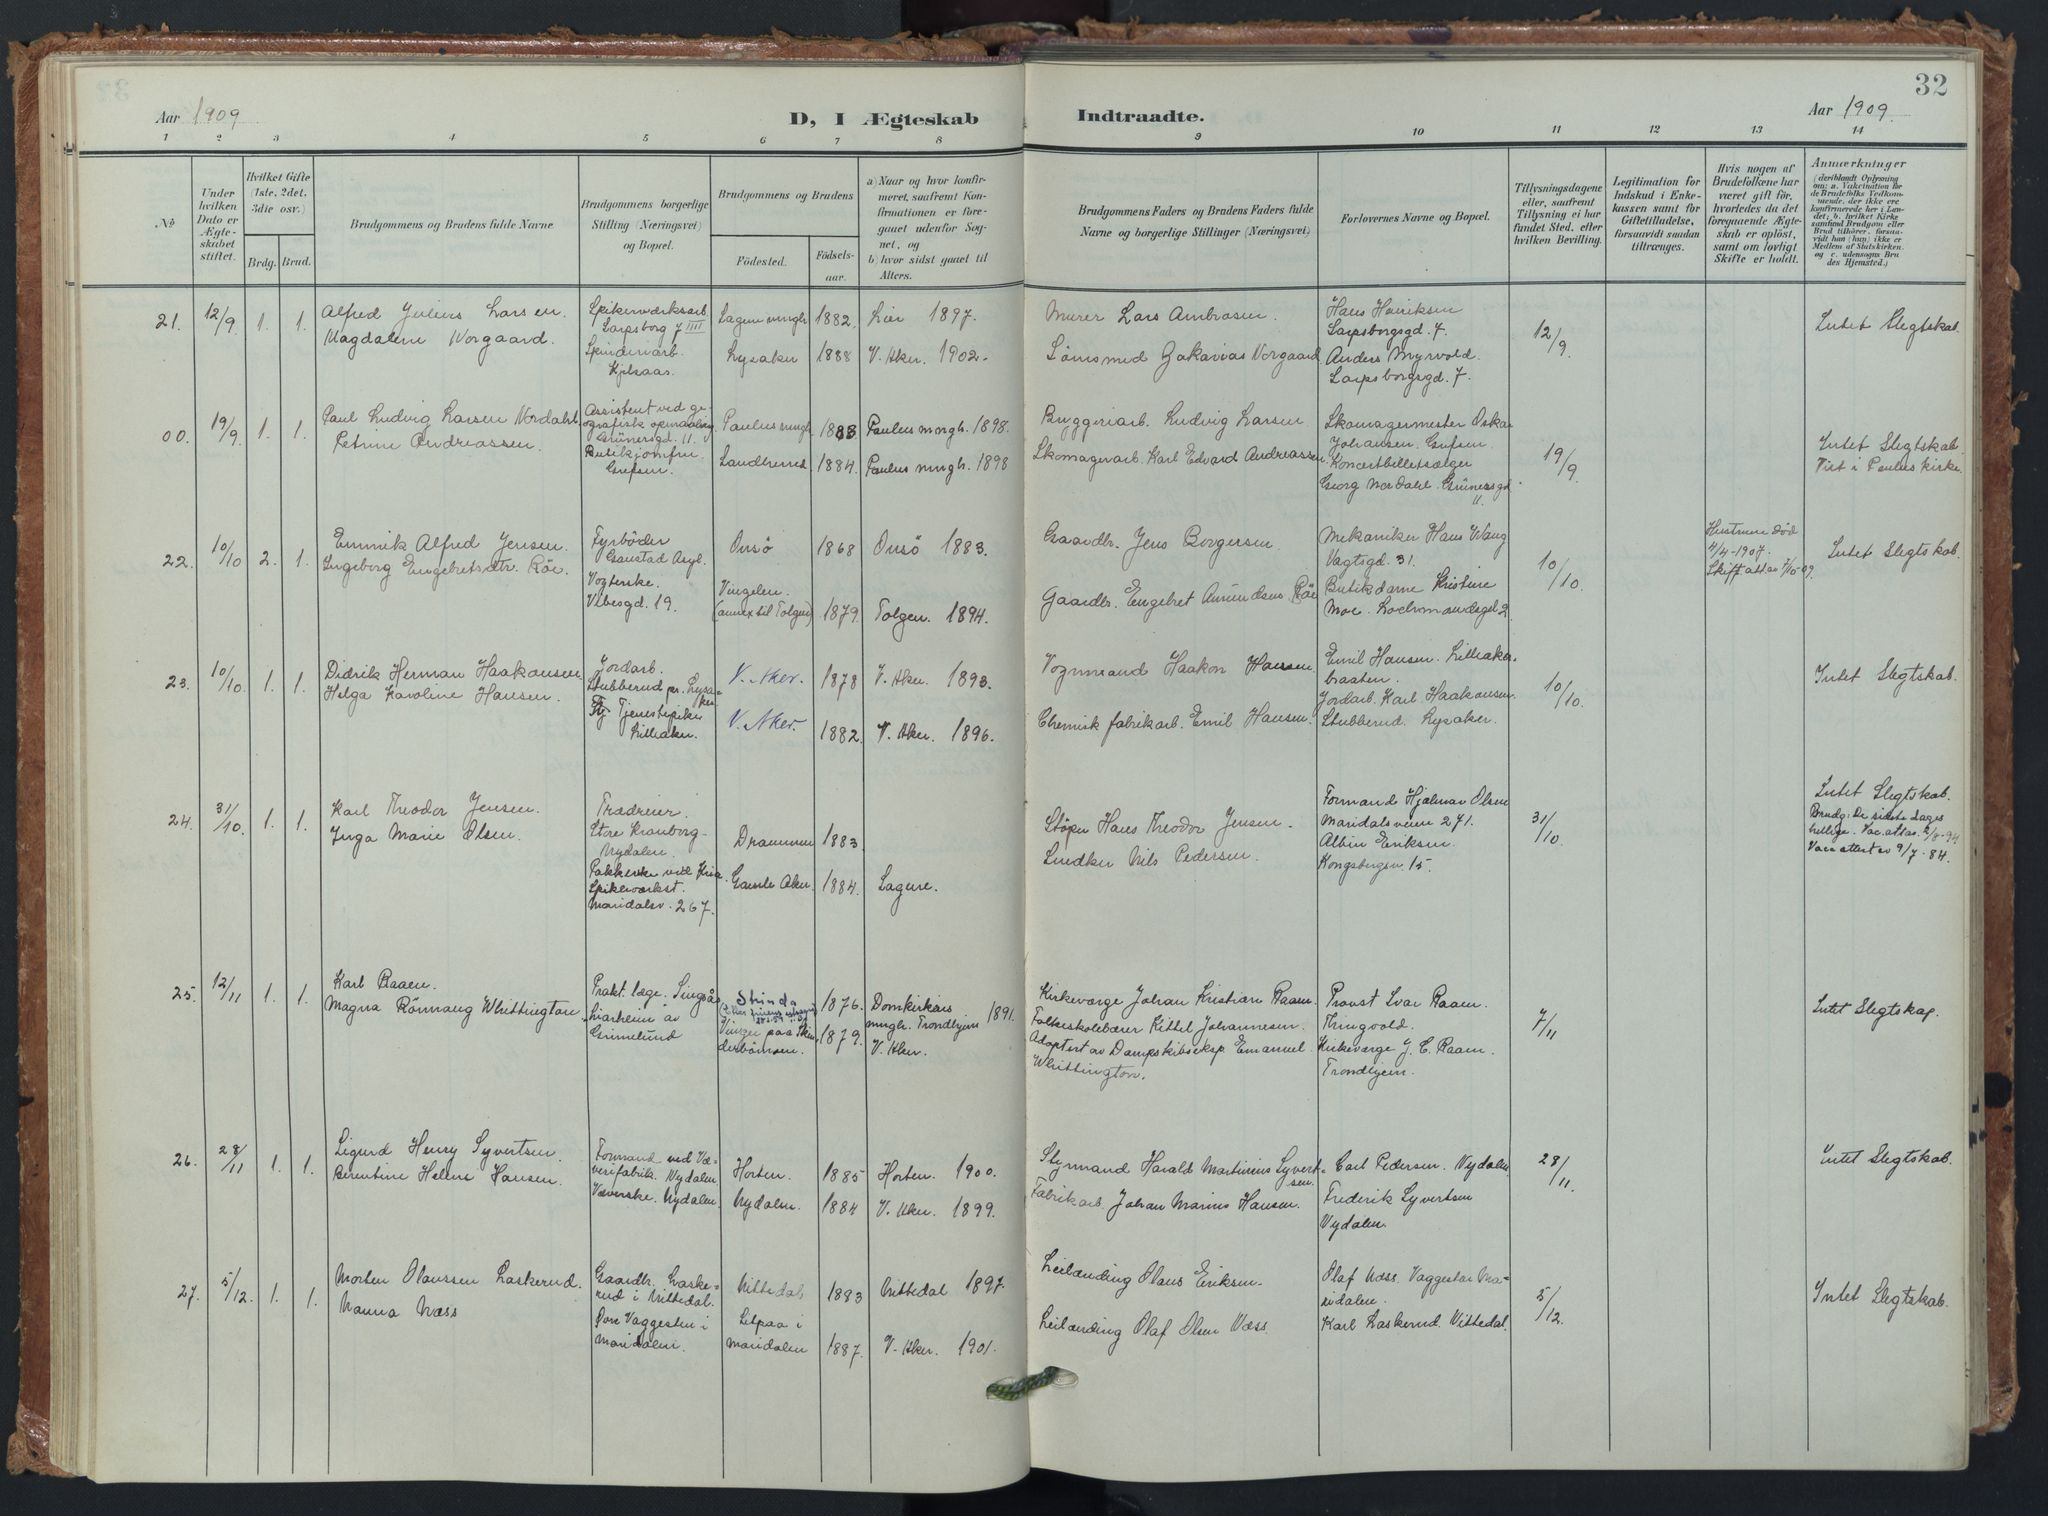 32
Aar 1909.
D, I Ægteskab Indtraadte.
Aar 1909.
1 2 3 4 5 6 7 8 9 10 11 12 13 14
№
Under hvilken Dato er Ægteskabet stiftet.
Hvilket Gifte (1ste, 2det, 3die osv.)
Brdg. Brud.
Brudgommens og Brudens fulde Navne
Brudgommens borgerlige Stilling (Næringsvei) og Bopæl.
Brudgommens og Brudens
Födested.
Födsels-aar.
a) Naar og hvor konfirmeret, saafremt Konfirmationen er foregaaet udenfor Sognet, og
b) hvor sidst gaaet til Alters.
Brudgommens Faders og Brudens Faders fulde Navne og borgerlige Stillinger (Næringsvei)
Forlovernes Navne og Bopæl.
Tillysningsdagene eller, saafremt Tillysning ei har fundet Sted, efter hvilken Bevilling.
Legitimation for Indskud i Enkekassen samt for Giftetilladelse, forsaavidt saadan tiltrænges.
Hvis nogen af Brudefolkene har været gift för, hvorledes da det foregaaende Ægteskab er oplöst, samt om lovligt Skifte er holdt.
Anmærkninger
(deriblandt Oplysning om: a. Vakcination for de Brudefolks Vedkommende, der ikke ere konfirmerede her i Landet; b. hvilket Kirkesamfund Brudgom eller Brud tilhörer, forsaavidt han (hun) ikke er Medlem af Statskirken, og c. udensogns Brudes Hjemsted.)
21. 12/9 1. 1.
Alfred Julius Larsen.
Magdalene Norgaard.
Spikerværksarb.
Sarpsborg 7
Spinderiarb.
Kjelsaas.
1882.
Lysaker 1888
Lier 1897.
V. Aker. 1902.
Murer Lars Ambrosen.
Zakarias Norgaard
Hans Henriksen
Sarpsborgsgd. 7.
Anders Myrvold.
Sarpsborgsgd. 7.
12/9.
Intet Slegtskab.
00. 19/9. 1. 1.
Paul Ludvig Larsen Nordahl
Petrine Andreassen.
Assistent ved geografisk opmaaling
Grünersgd. 11.
Butikjomfru.
Grefsen.
Paulus mngh. 1883.
1884.
Paulus mengh. 1898.
Paulus mngh. 1898
Bryggeriarb. Ludvig Larsen
Skomagerarb. Karl Edvard Andreassen.
Skomagermester Oskar
Johansen. Grefsen.
Koncertbilletsælger
Georg Nordahl. Grünersgd. 11.
19/9.
Intet Slegtskab.
Viet i Paulus Kirke.
22. 10/10 2. 1.
Emrik Alfred Jensen.
Ingeborg Engebretsdtr. Röe.
Fyrböder
Gaustad Asyl.
Vogterske.
Vibesgd. 19.
Onsö 1868
Vingelen.
(annex til Tolgen) 1879.
Onsö 1883.
Tolgen. 1894.
Gaardbr. Jens Borgersen
Gaardbr. Engebret Amundsen Röe
Mekaniker Hans Wang
Vagtsgd. 31.
Butikdame Kristine
Moe.
10/10.
Hustruen död
4/4-1907.
Skifteatt. av 7/10-09.
Intet Slegtskab.
23. 10/10. 1. 1.
Didrik Herman Haakonsen
Helga Karoline Hansen.
Jordarb.
Stubberud pr. Lysaker
Tjenestepike
Lilleaker.
V. Aker. 1878
V. Aker. 1882.
V. Aker. 1893.
V. Aker. 1896.
Vognmand Haakon Hansen.
Chemisk fabrikarb. Emil Hansen.
Emil Hansen. Lilleakerbraaten.
Jordarb. Karl Haakonsen.
Stubberud. Lysaker.
10/10.
Intet Slegtskab.
24. 31/10. 1. 1.
Karl Theodor Jensen.
Inga Marie Olsen.
Trædreier.
Store Kranborg
Nydalen.
Pakkerske ved Kria.
Spikerværkst.
Maridalsv. 267.
Drammen 1883.
Gamle Aker. 1884.
Sagene.
Stöper Hans Theodor Jensen.
Snedker Nils Pedersen.
Formand Hjalmar Olsen
Maridalsveien 271.
Albin Eriksen.
Kongsbergsv. 15.
31/10.
Intet Slegtskab.
Brudg: De sidste dages
hellige.
Vac. attest av 9/7-84.
25. 12/11 1. 1.
Karl Raaen.
Magna Rönnaug Whittington
Prakt. læge. Singsås
Grimelund
Strinda 1876.
1879.
Domkirkens 1891.
mngh. Trondhjem
V. Aker.
Kirkeværge Johan Kristian Raaen.
Folkeskolelærer Kittel Johannesen.
Adoptert av Dampskibseksp. Emanuel
Whittington.
Provst Ivar Raaen.
Thingvold.
Kirkeværge J. C. Raaen.
Trondhjem.
7/11.
Intet Slegtskap.
26. 28/11 1. 1.
Sigurd Henry Syvertsen.
Berentine Helene Hansen.
Formand ved Væverifabrik. Nydalen
Væverske. Nydalen.
Horten. 1885
Nydalen. 1884
Horten. 1900.
V. Aker. 1899.
Styrmand Harald Martinius Syvertsen.
Fabrikarb. Johan Marius Hansen.
Carl Pedersen. Nydalen.
Frederik Syvertsen
Nydalen.
28/11.
Intet Slegtskab.
27. 5/12. 1. 1.
Morten Olaussen Laskerud.
Nanna Næss
Gaardbr. Laskerud i Nittedal.
Vaggesten i
Maridalen.
Nittedal 1883
i
Maridalen 1887.
Nittedal 1897.
V. Aker. 1901.
Leilænding Olaus Eriksen.
Leilænding Olaf Olsen Næss.
Olaf Næss. Vaggesten Maridalen.
Karl Laskerud. Nittedal.
5/12.
Intet Slegtskab.